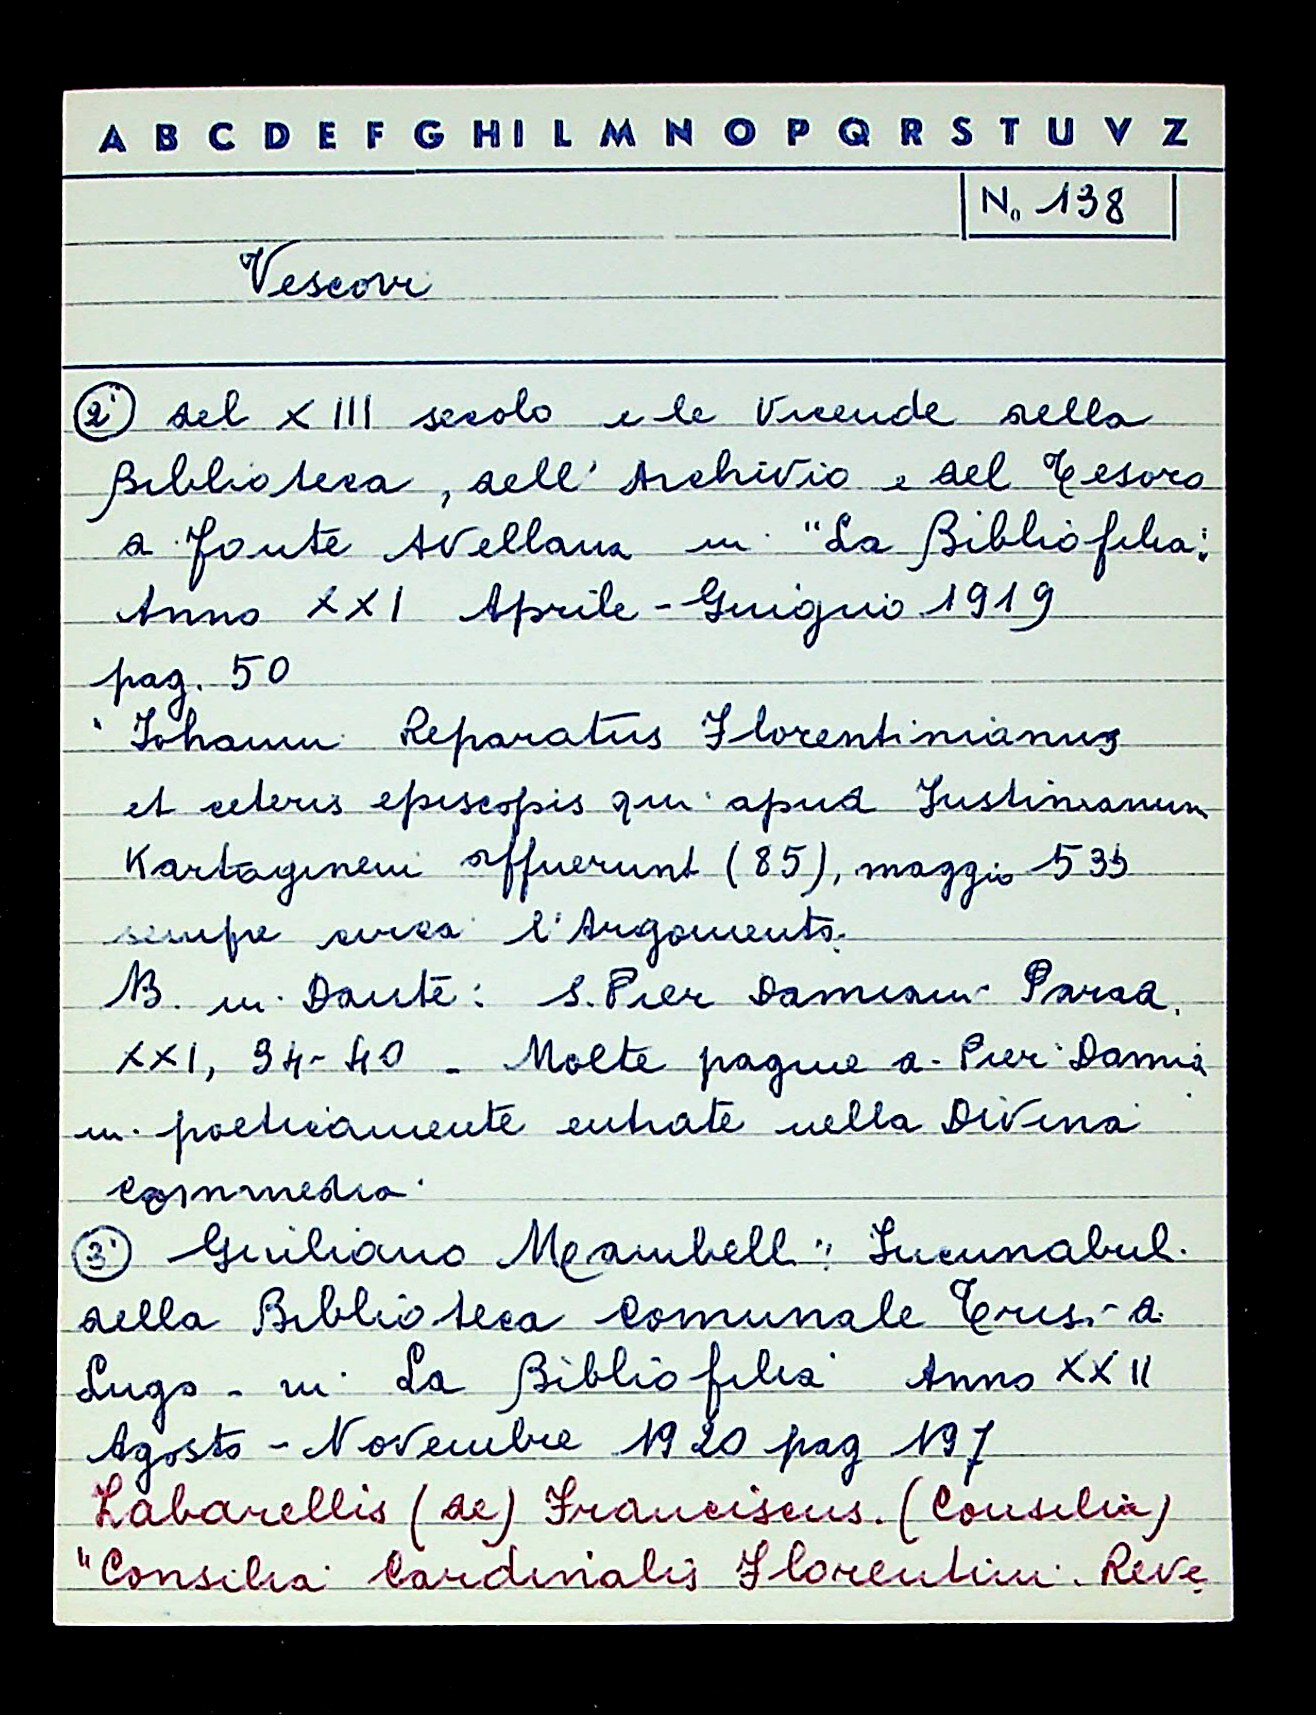 A B C D E F G H I L M N O P Q R S T U V Z
No 138
Vescovi
2) del XIII secolo e le vicende della
Biblioteca, dell' Archivio e del Tesoro
a Fonte Avellana in "La Bibliofilia"
Anno XXI Aprile - Giugno 1919
pag. 50
"Johanni Reparatus Florentinianus
et ceteris episcopis qui apud Justinianum
Kartagineni affuerunt (85), maggio 535
sempre circa l'Argomento.
NB. in Dante: S. Pier Damiani Parad.
XXI, 34-40 - Molte pagine a Pier Damia
ni poeticamente entrate nella Divina
Commedia
3) Giuliano Mambelli: Incunaboli
della Biblioteca Comunale Trisi di
Lugo - in La Bibliofilia Anno XXII
Agosto - Novembre 1920 pag 197
Zabarellis (de) Franciscus. (Consilia)
"Consilia Cardinalis Florentini. Reve